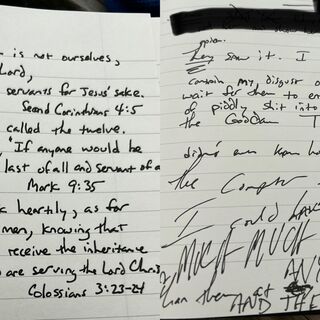 is not ourselves,
Lord,
servants for Jesus' sake.
Second Corinthians 4:5
called the twelve.
"If anyone would be
last of all and servant of a
Mark 9:35
heartily, as for
men, knowing that
receive the inheritance
are serving the Lord Chris
Colossians 3:23-24
saw it. I
contain my disgust o
wait for them to en
of piddly shit into
the GodDamn T
didn't even
the Computer
I could
MUCH MUCH
AN
than them at
AND THE